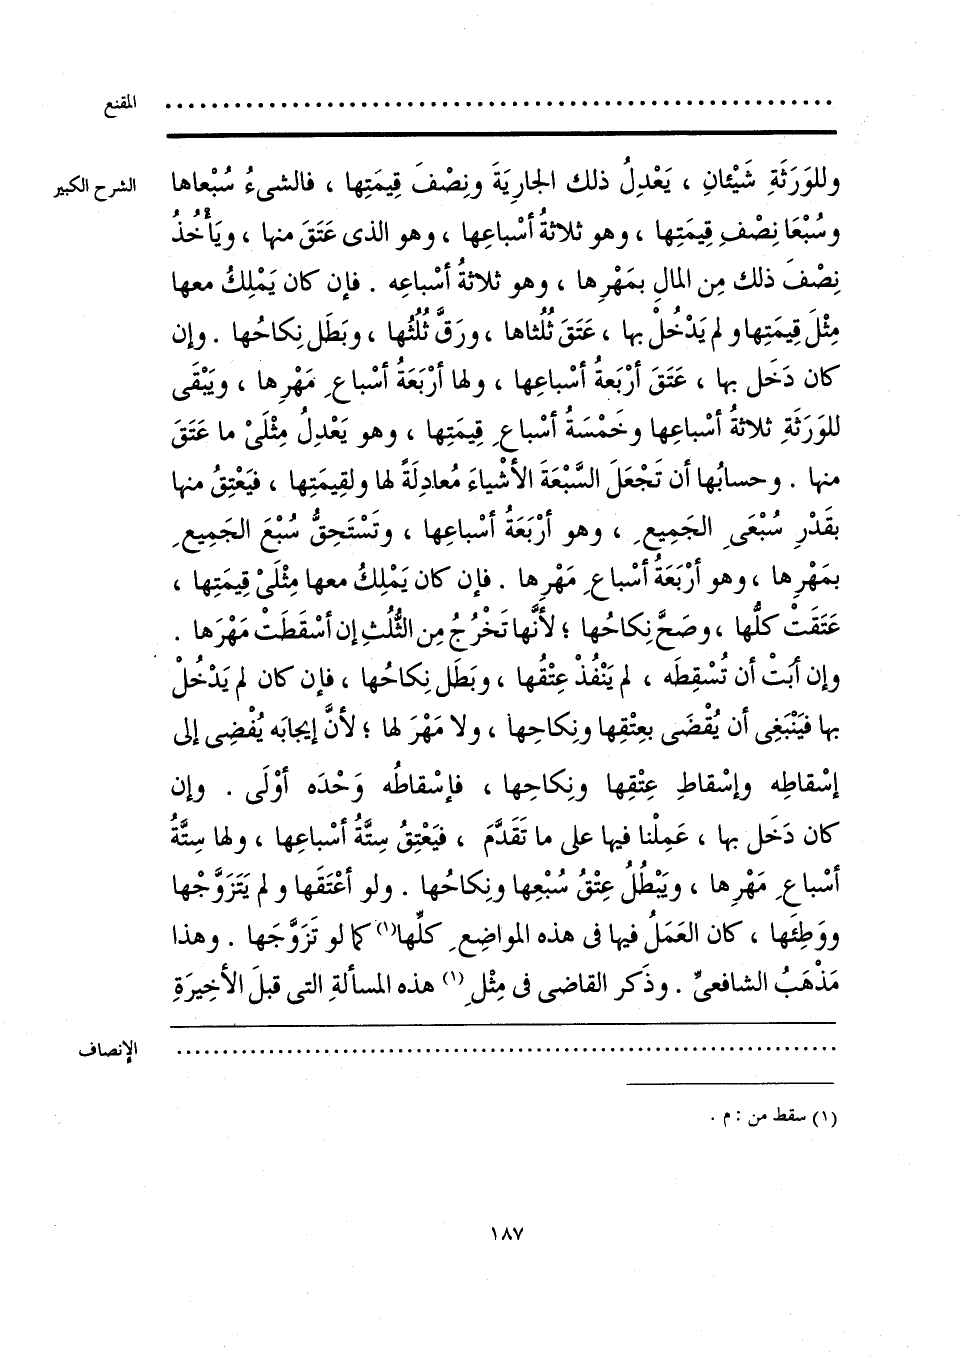 المقنع ..........................................................
الشرح الكبير
وللوَرَثَةِ شَيْئانِ ، يَعْدِلُ ذلك الجارِيَةَ ونِصْفَ قِيمَتِها ، فالشىءُ سُبْعاها
وسُبْعَا نِصْفِ قِيمَتِها ، وهو ثلاثةُ أسْباعِها ، وهو الذى عَتَقَ منها ، ويَأْخُذُ
نِصْفَ ذلك مِن المالِ بمَهْرِها ، وهو ثلاثةُ أسْباعِه . فإن كان يَمْلِكُ معها
مِثْلَ قِيمَتِها ولم يَدْخُلْ بها ، عَتَقَ ثُلُثاها ، ورَقَّ ثُلُثُها ، وبَطَل نِكاحُها . وإن
كان دَخَل بها ، عَتَقَ أرْبَعةُ أسْباعِها ، ولها أرْبَعَةُ أسْباعِ مَهْرِها ، ويَبْقَى
للوَرَثَةِ ثلاثةُ أسْباعِها وخَمْسَةُ أسْباعِ قِيمَتِها ، وهو يَعْدِلُ مِثْلَىْ ما عَتَقَ
منها . وحسابُها أن تَجْعَلَ السَّبْعَةَ الأشْياءَ مُعادِلَةً لها ولقِيمَتِها ، فيَعْتِقُ منها
بقَدْرِ سُبْعَىِ الجَمِيعِ ، وهو أرْبَعَةُ أسْباعِها ، وتَسْتَحِقُّ سُبْعَ الجَمِيعِ
بمَهْرِها ، وهو أرْبَعَةُ أسْباعِ مَهْرِها . فإن كان يَمْلِكُ معها مِثْلَىْ قِيمَتِها ،
عَتَقَتْ كلُّها ، وصَحَّ نِكاحُها ؛ لأنَّها تَخْرُجُ مِن الثُّلُثِ إن أسْقَطَتْ مَهْرَها .
وإن أبَتْ أن تُسْقِطَه ، لم يَنْفُذْ عِتْقُها ، وبَطَل نِكاحُها ، فإن كان لم يَدْخُلْ
بها فيَنْبَغِى أن يُقْضَى بعِتْقِها ونِكاحِها ، ولا مَهْرَ لها ؛ لأنَّ إيجابَه يُفْضِى إلى
إسْقاطِه وإسْقاطِ عِتْقِها ونِكاحِها ، فإسْقاطُه وَحْدَه أوْلَى . وإن
كان دَخَل بها ، عَمِلْنا فيها على ما تَقَدَّمَ ، فيَعْتِقُ سِتَّةُ أسْباعِها ، ولها سِتَّةُ
أسْباعِ مَهْرِها ، ويَبْطُلُ عِتْقُ سُبْعِها ونِكاحُها . ولو أعْتَقَها ولم يَتَزَوَّجْها
ووَطِئَها ، كان العَمَلُ فيها فى هذه المواضِعِ كلِّها(١) كما لو تَزَوَّجَها . وهذا
مَذْهَبُ الشافعىِّ . وذَكَر القاضى فى مِثْلِ(١) هذه المسألةِ التى قبلَ الأخِيرَةِ
الإنصاف ..........................................................
(١) سقط من : م .
١٨٧